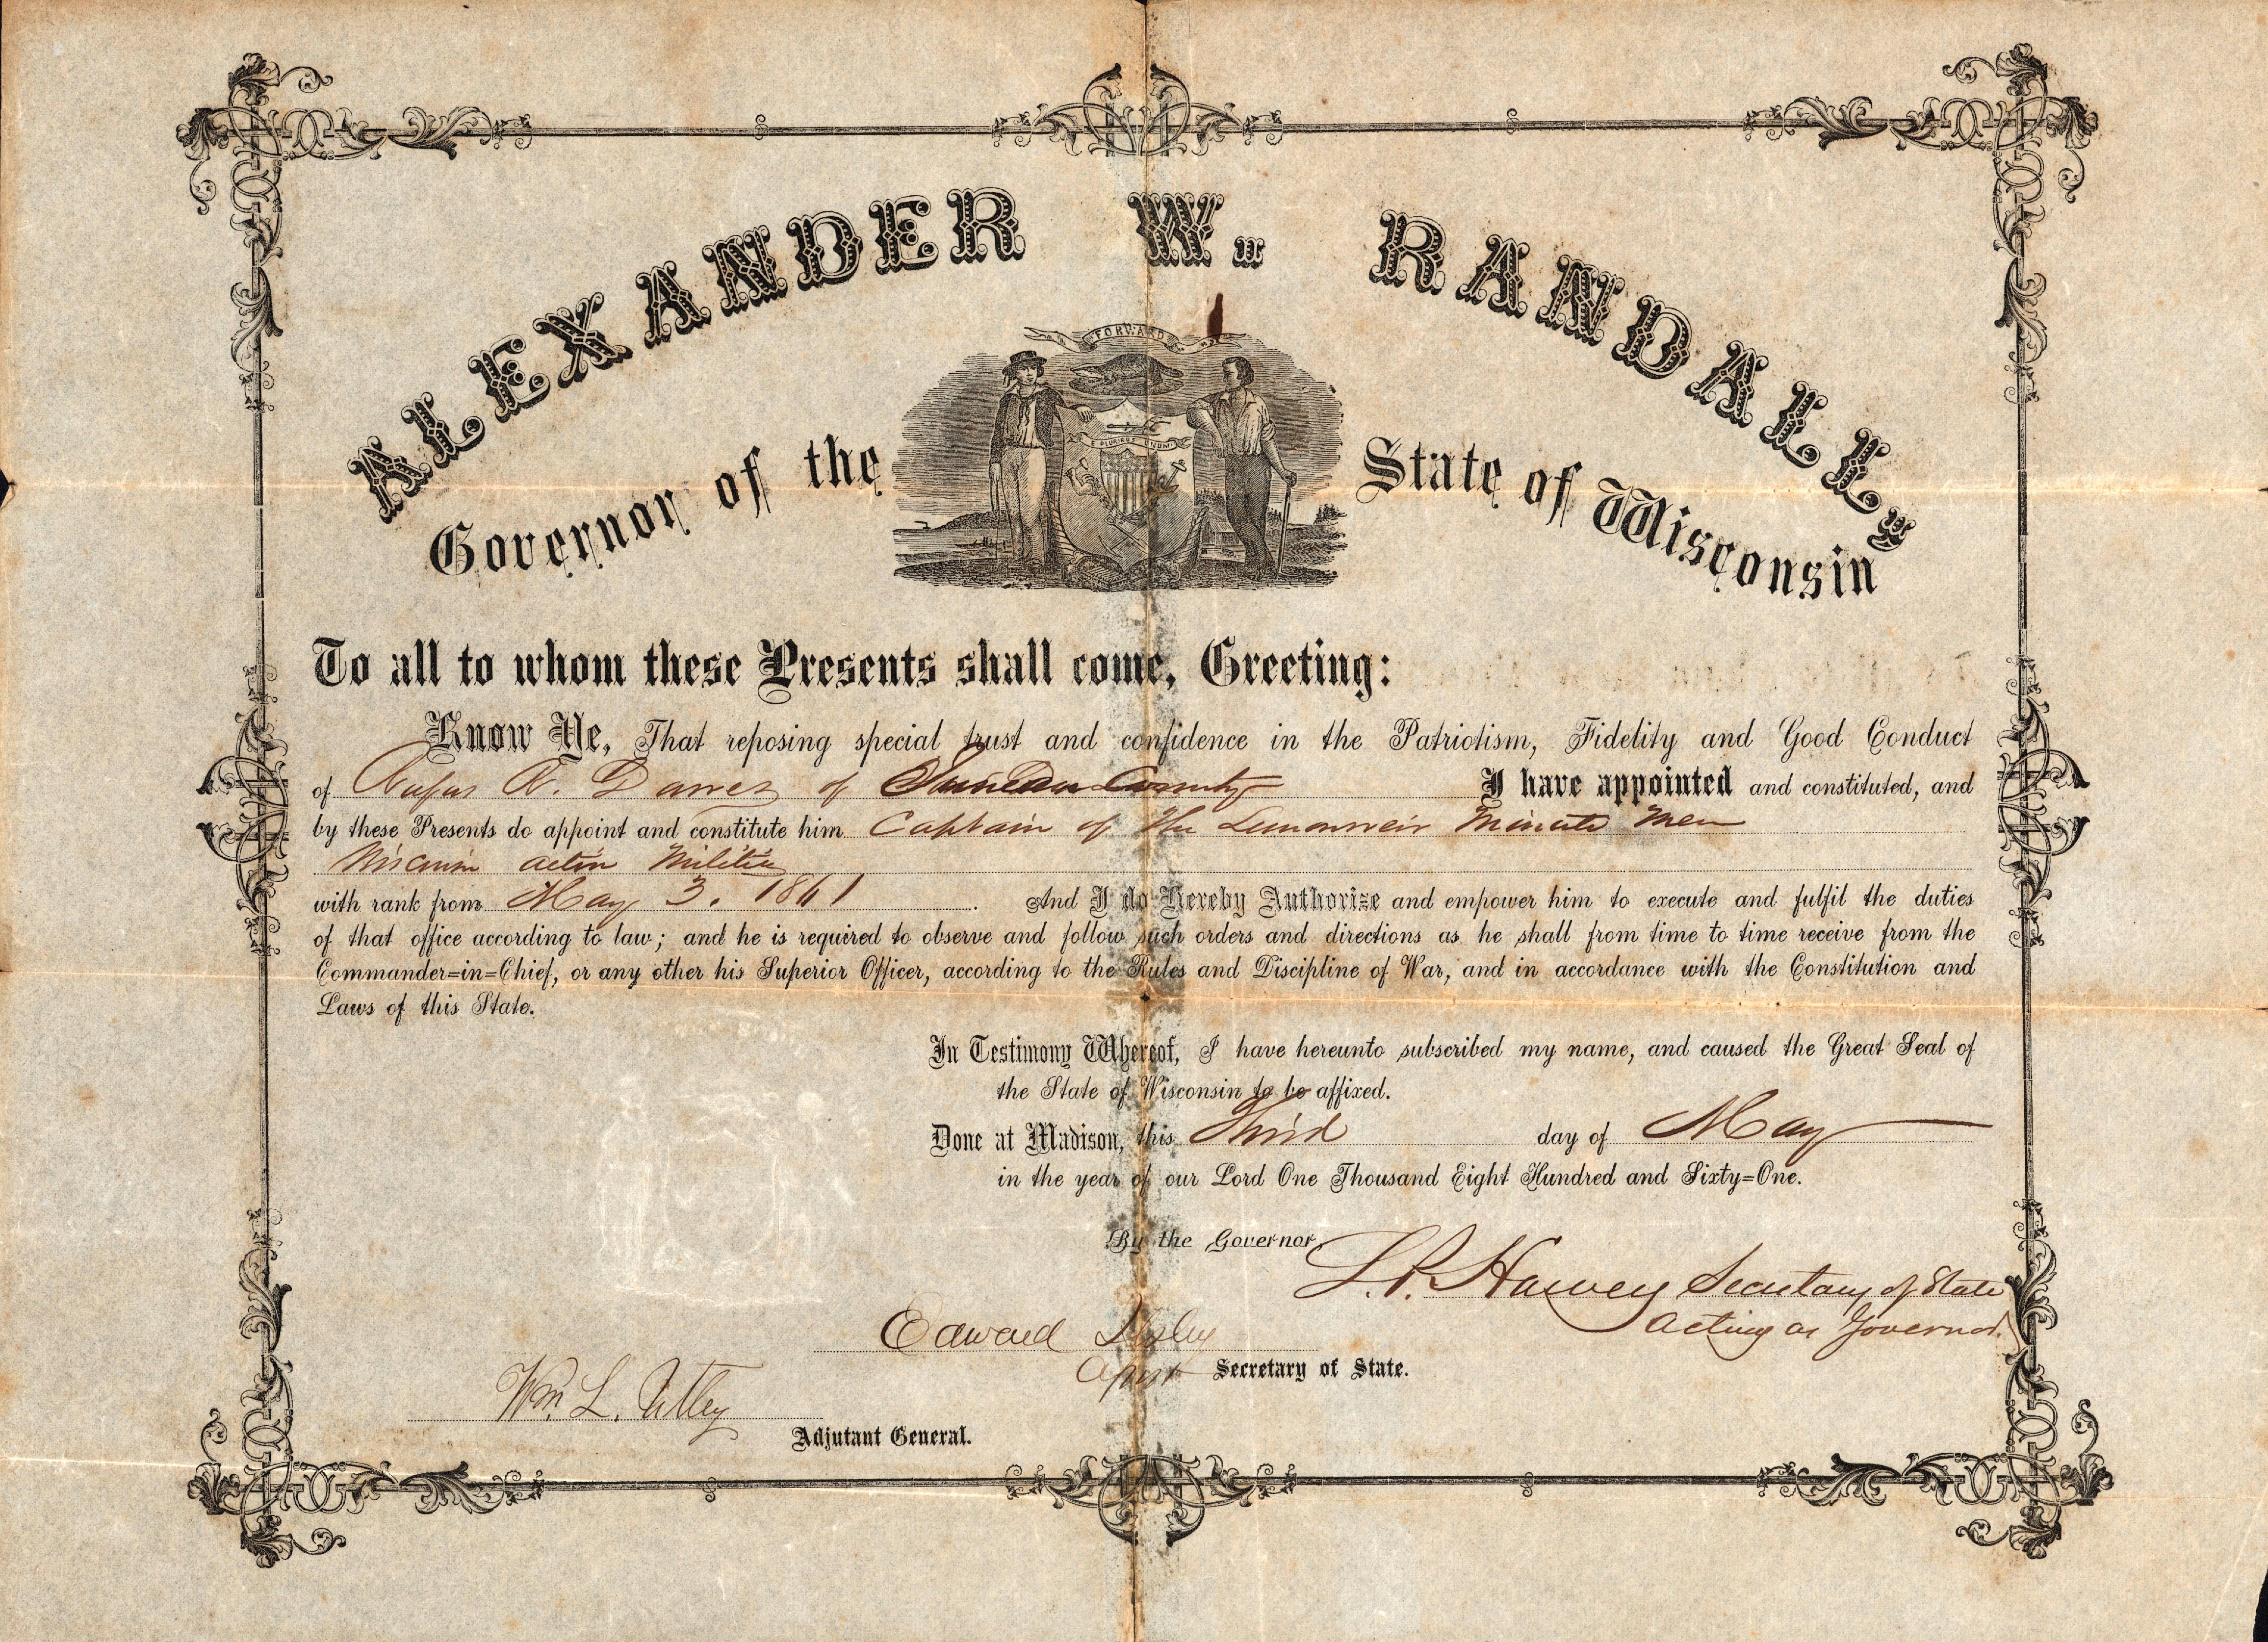 ALEXANDER W. RANDALL,
FORWARD
E PLURIBUS UNUM
Governor of the State of Wisconsin
To all to whom these Presents shall come, Greeting:
Know Ye, That reposing special trust and confidence in the Patriotism, Fidelity and Good Conduct
of Rufus R. Dawes of Juneau County I have appointed and constituted, and
by these Presents do appoint and constitute him Captain of the Lemonweir Minute Men
Militia
with rank from May 3. 1861. And I do Hereby Authorize and empower him to execute and fulfil the duties
of that office according to law; and he is required to observe and follow such orders and directions as he shall from time to time receive from the
Commander=in=Chief, or any other his Superior Officer, according to the Rules and Discipline of War, and in accordance with the Constitution and
Laws of this State.
In Testimony Whereof, I have hereunto subscribed my name, and caused the Great Seal of
the State of Wisconsin to be affixed.
Done at Madison, this Third day of May
in the year of our Lord One Thousand Eight Hundred and Sixty=One.
By the Governor
L. P. Harvey Secretary of State
Acting as Governor.
Edward Ilsley
Secretary of State.
Wm. L. Utley
Adjutant General.